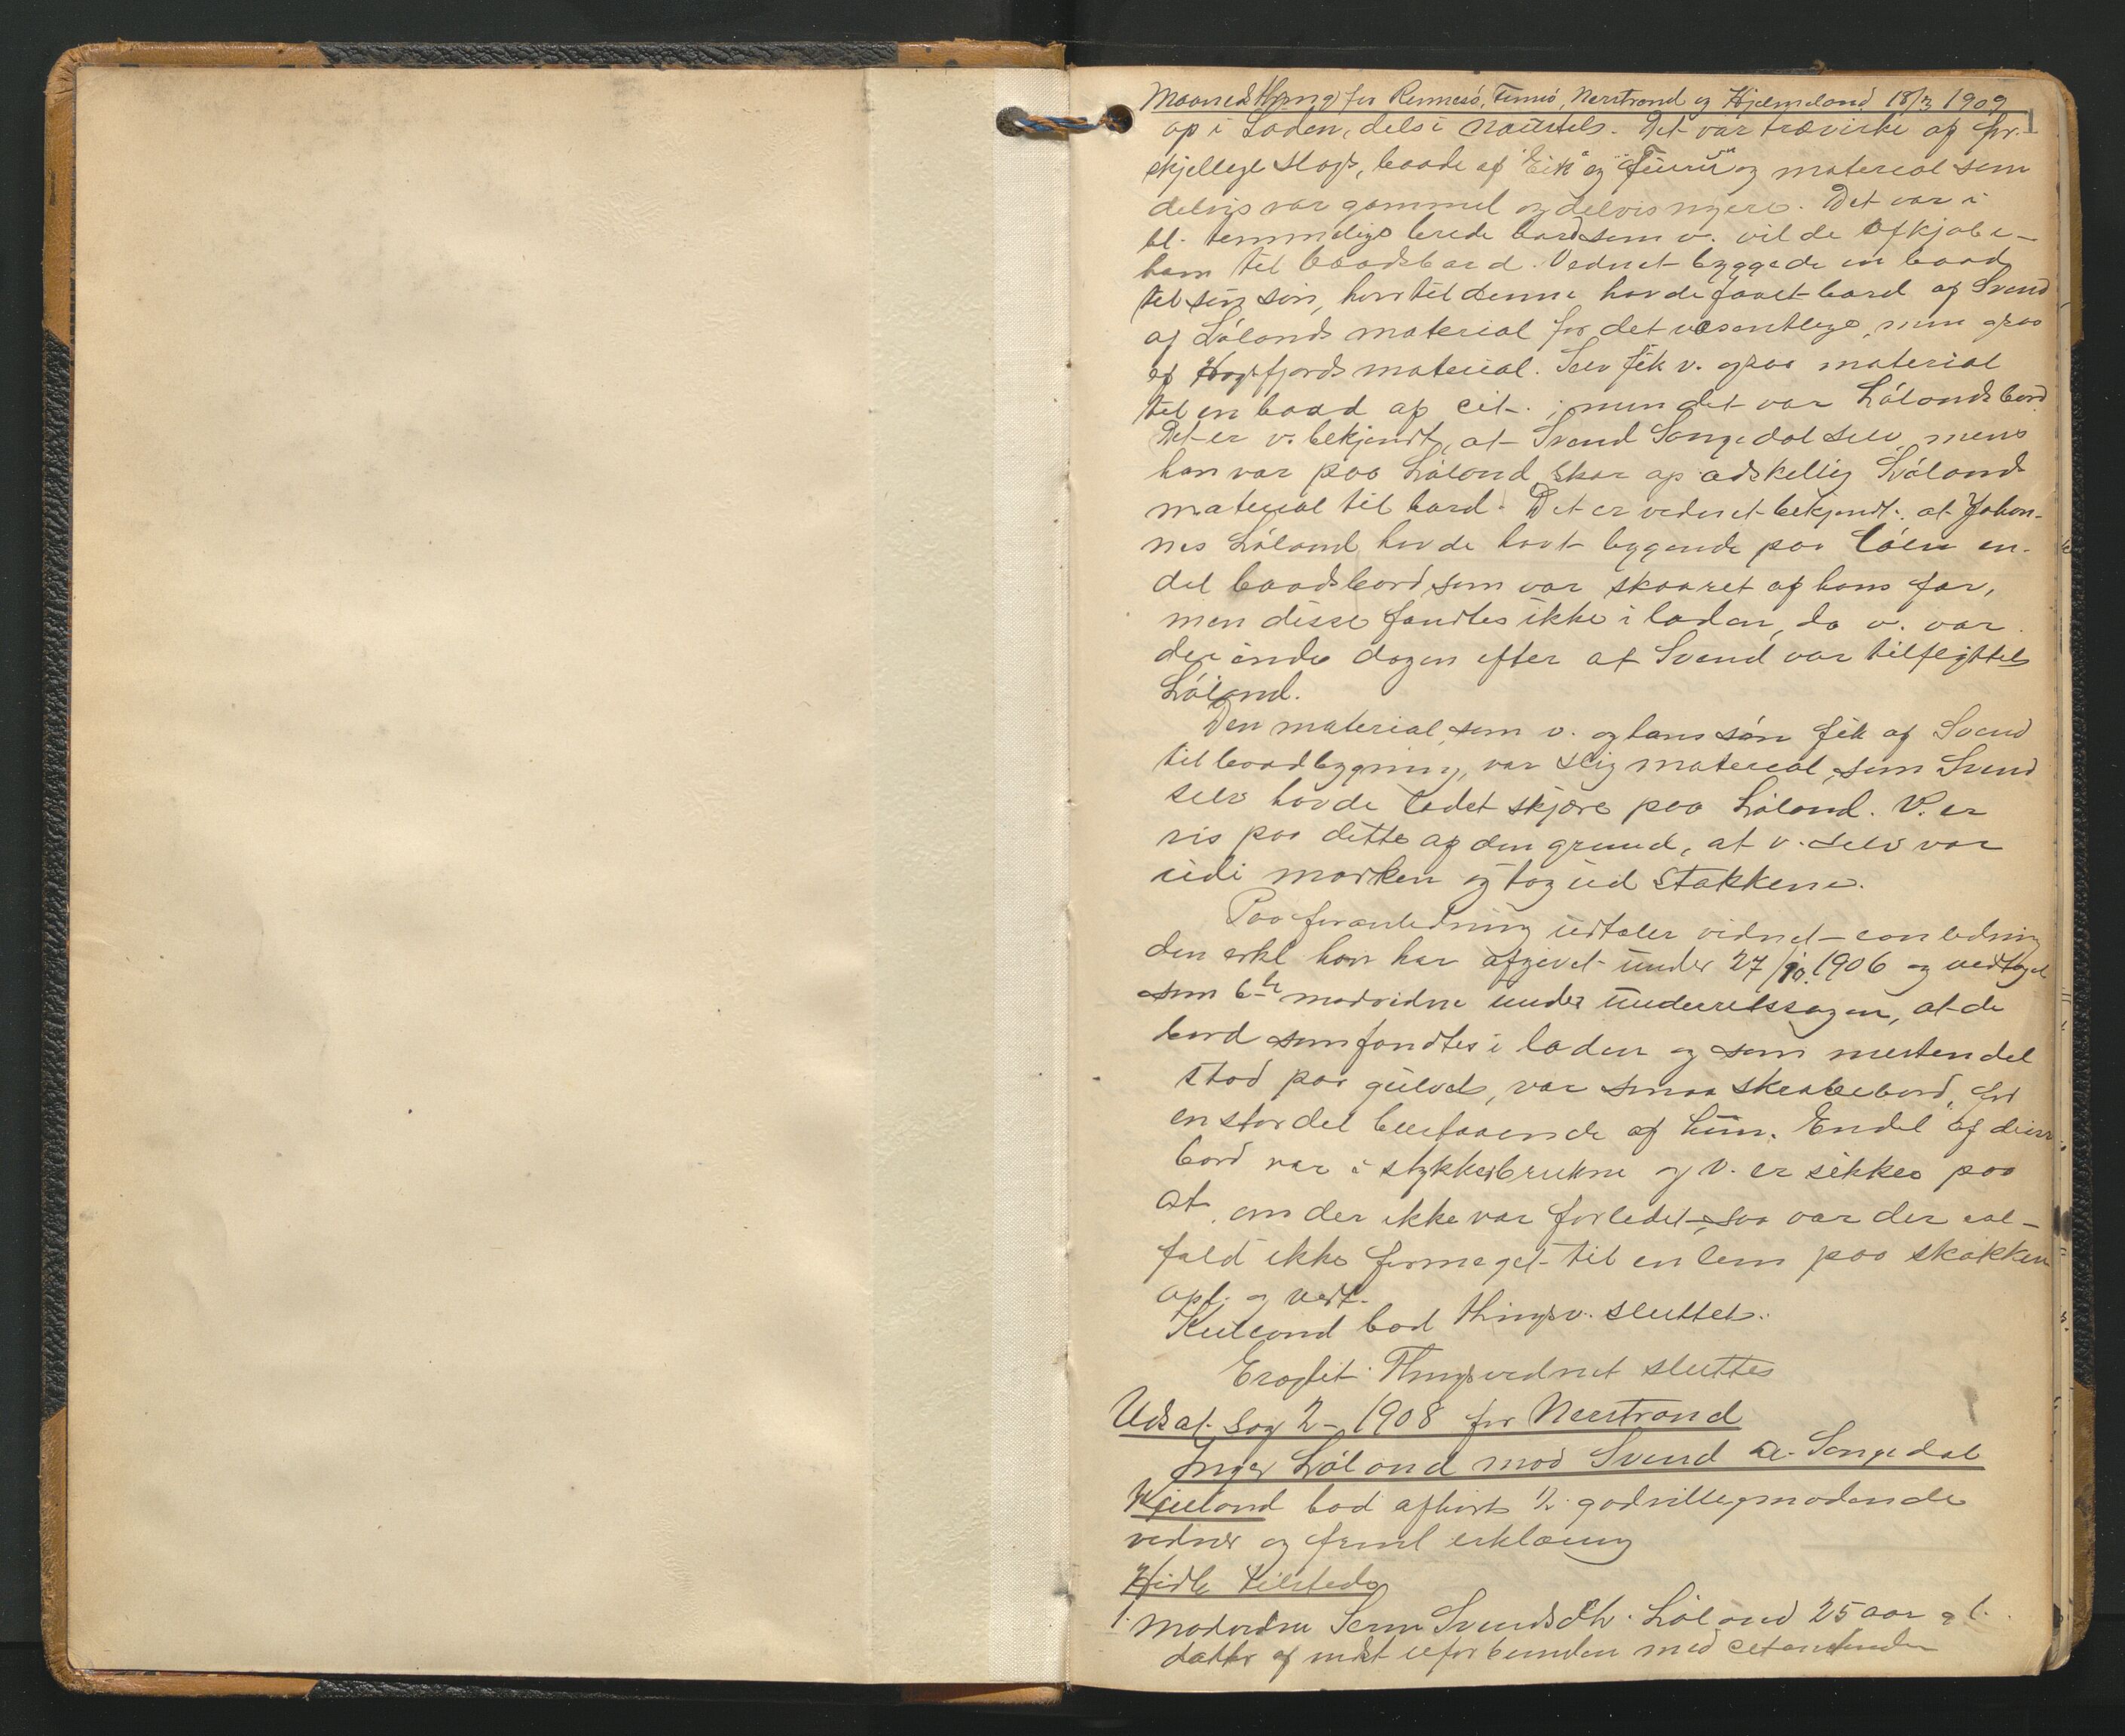 Maanedsthing for Rennesö, Finnö, Nerstrand og Hjelmeland 18/3 1909
1
op i Laden, dels i Naustet. Det var trævirke af for-
skjellige slags, baade af "Eik" og "Furru" og material som
delvis var gammel og delvis nyere. Det var i
bl. temmelige brede bord som v. vilde afkjøbe
ham til baadsbord. Vidnet byggede en baad
til sin søn, hvortil denne havde faaet bord af Svend
af Lölands material for det væsentlige, men ogsaa
af Høgsfjords material. Selv fik v. ogsaa material
til en baad af cit. ; men det var Lölandsbord
Det er v. bekjendt, at Svend Sangedal selv, mens
han var paa Löland skar op adskellig Lölands
material til bord. Det er vidnet bekjendt, at Johan-
nes Löland havde havt liggende paa Löen en-
del baadsbord som var skaaret af hans far,
men disse fandtes ikke i laden, da v. var
der inde dagen efter at Svend var tilflyttet
Löland.
Den material, som v. og hans søn fik af Svend
til baadbygning, var slig material, som Svend
selv havde ladet skjære paa Löland. V. er
vis paa dette af den grund, at v. selv var
ude i marken og tog ud stokkene.
Paa foranledning udtaler vidnet - anledning
den erkl han har afgivet under 27/10.1906 og vedtaget
som 6te modvidne under underretssagen, at de
bord som fandtes i laden og som mestendel
stod paa gulvet, var smaa skrabebord, for
en stor del bestaaende af hun. En del af disse
bord var i stykkerbrukne og v. er sikker paa
at, om der ikke var forledet, saa var der ial-
fald ikke formeget til en lem paa stokken
opl. og vedt.
Kielland bad thingsv. sluttet.
Eragtet: Thingsvidnet sluttes
Uds af. Sag 2 - 1908 for Nerstrand
Inger Löland mod Svend A. Sangedal
Kielland bad afhørt 1/2 godvilligmødende
vidner og freml erklæring
Hidle tilstede
1. modvidne Serine Svendsdtr. Löland 25 aar gl.
datter af indst ueforbunden med citantinden